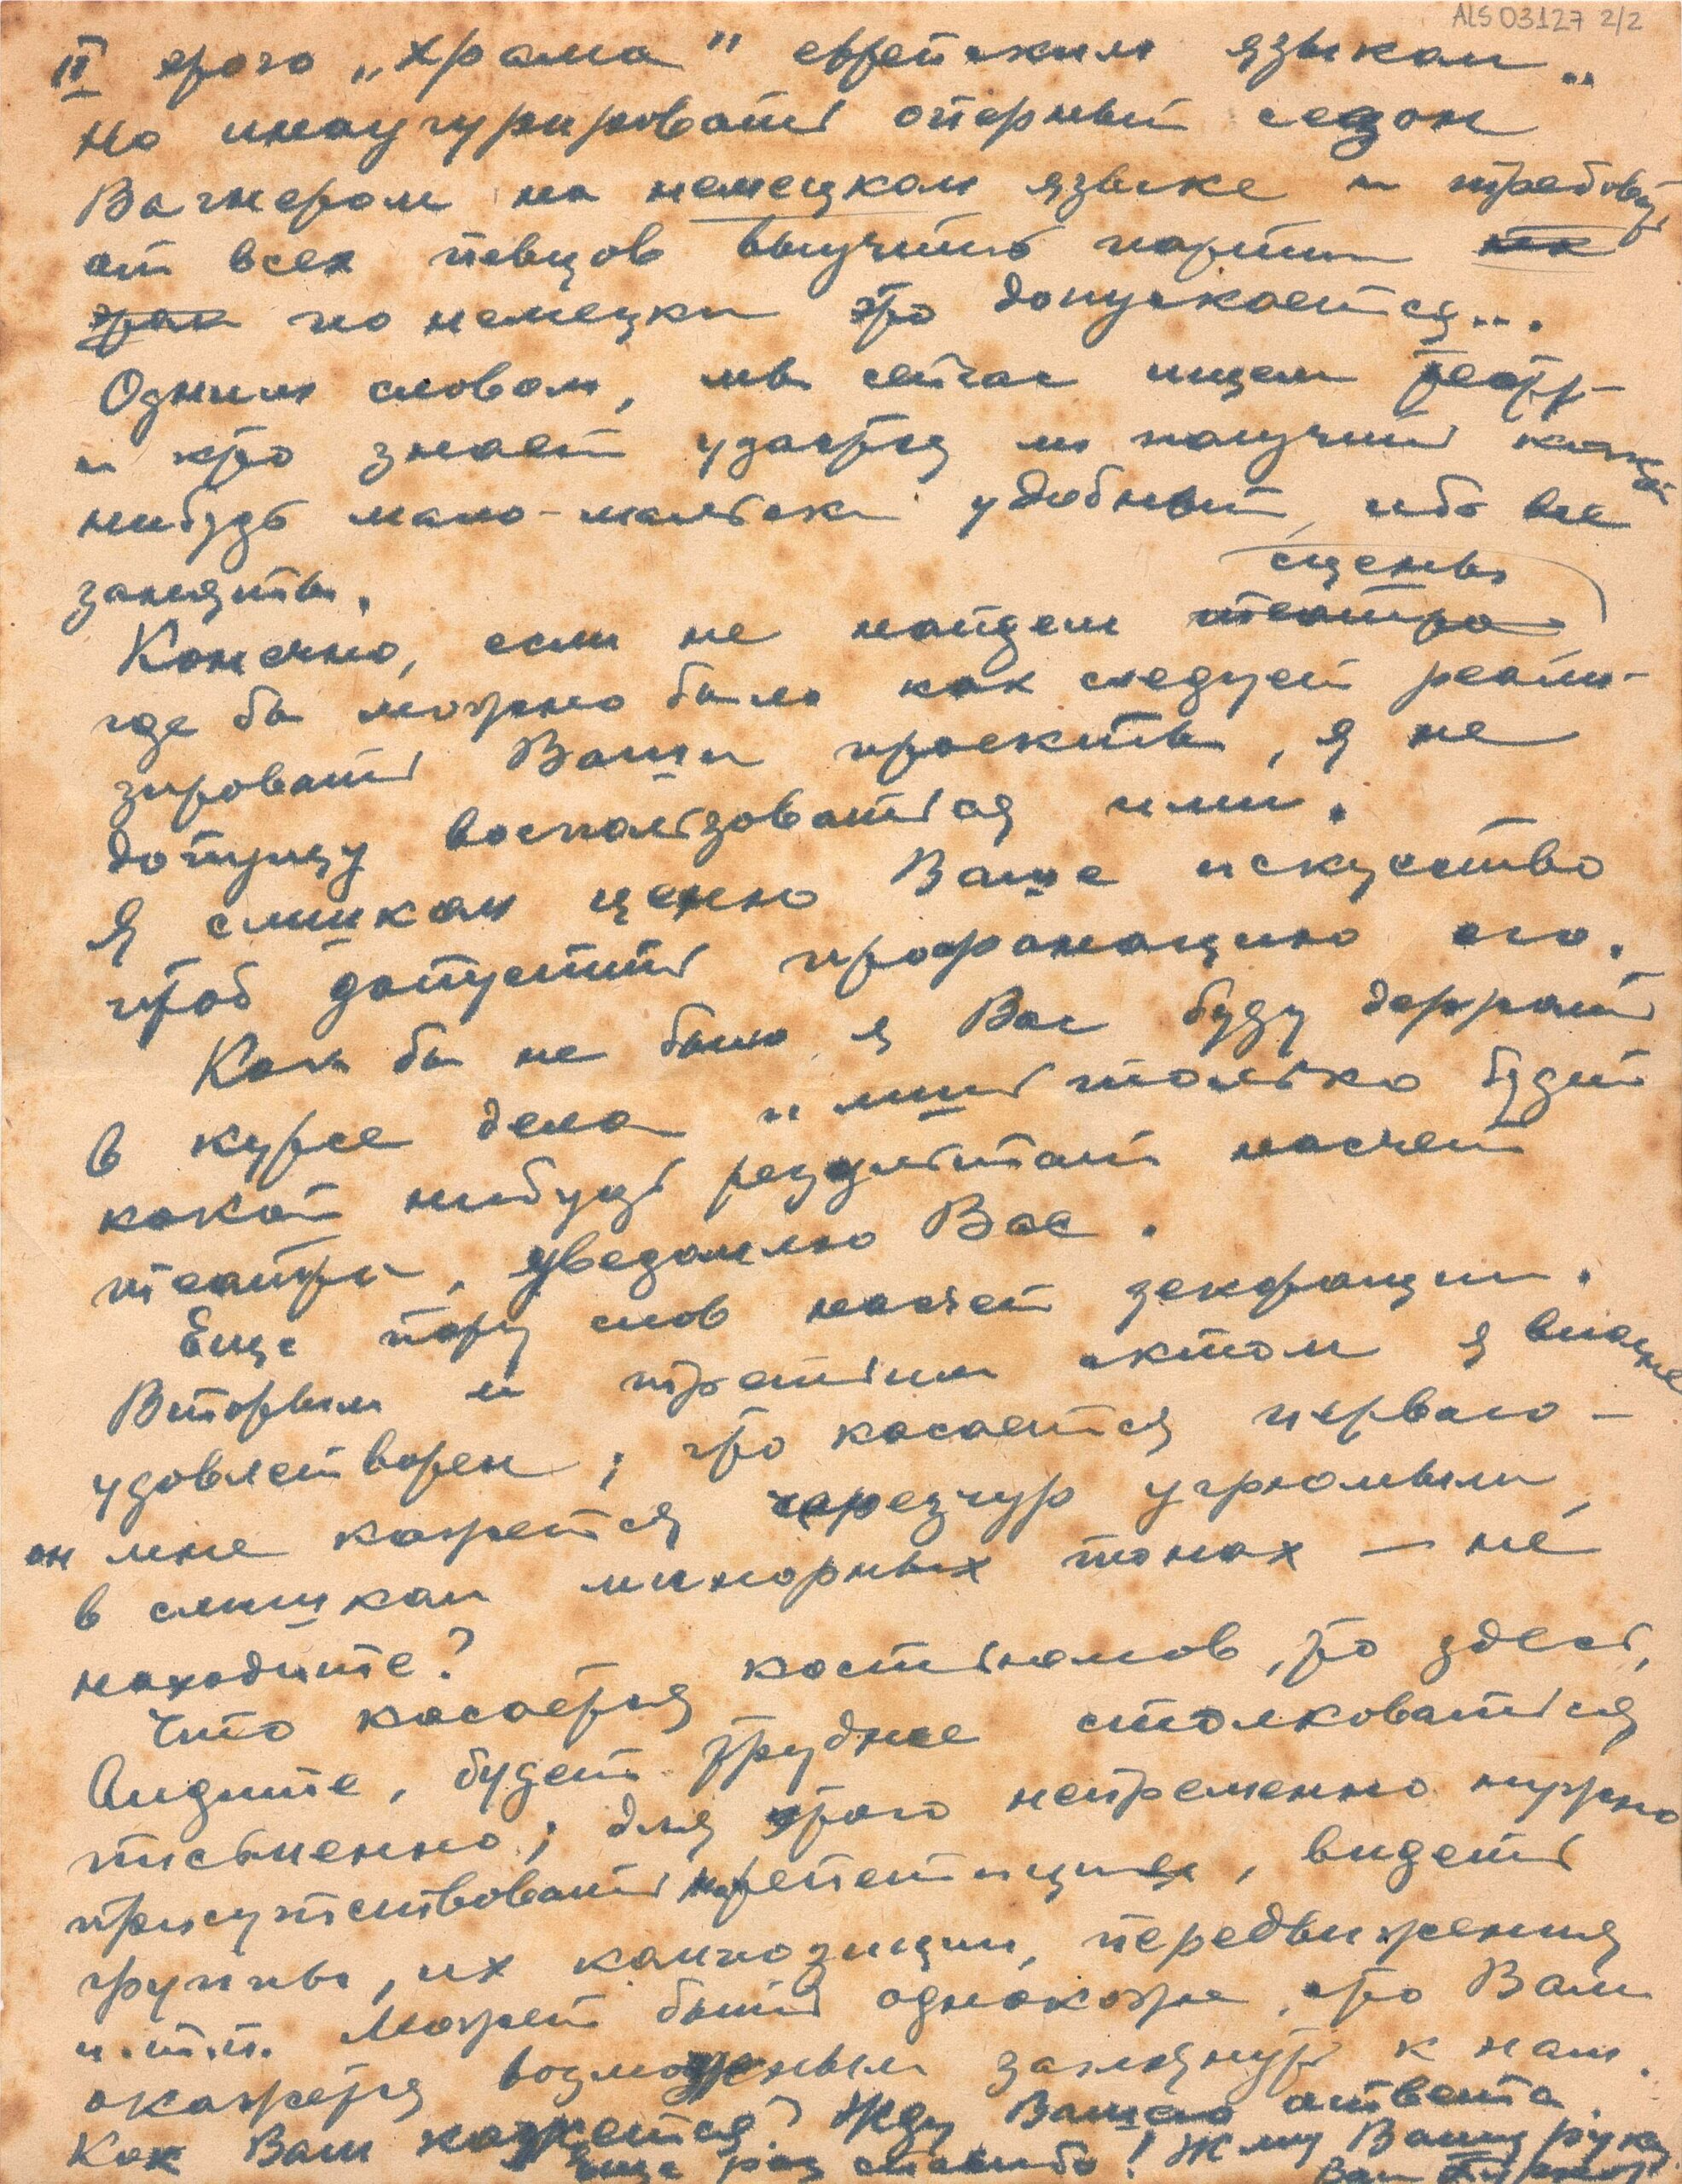 ALS 03127 2/2
II этого „храма" еврейским языком..
но инаугурировать оперный сезон
Вагнером на немецком языке и требовать
от всех певцов выучить партии
по немецки это допускается...
Одним словом, мы сейчас ищем театр
и кто знает удастся ли получить какой
нибудь мало-мальски удобный, ибо все
заняты.
сцены
Конечно, если не найдем театра
где бы можно было как следует реали-
зировать Ваши проекты, я не
допущу воспользоваться ими.
Я слишком ценю Ваше искусство
чтоб допустить профанацию его.
Как бы не было я Вас буду держать
в курсе дела и лишь только будет
какой нибудь результат насчет
театра, уведомлю Вас.
Еще пару слов насчет декорации.
Вторым и третьим актом я вполне
удовлетворен; что касается первого -
он мне кажется черезчур угрюмым,
в слишком минорных тонах — не
находите?
Что касается костюмов, то здесь,
видите, будет труднее столковаться
письменно; для этого непременно нужно
присутствовать на репетициях, видеть
группы, их композиции, передвижения
и.т.п. Может быть однакоже, что Вам
окажется возможным заглянуть к нам.
Как Вам кажется? Жду Вашего ответа.
Еще раз спасибо! Жму Вашу руку
Ваш